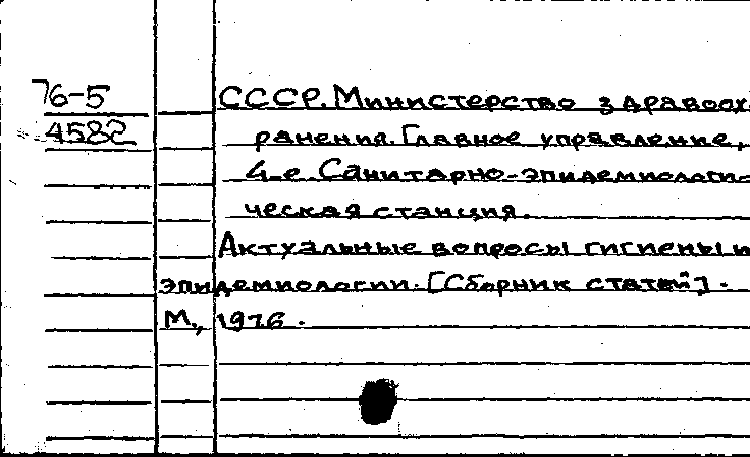 76-5
4582
СССР. Министерство здравоох
ранения. Главное управление,
4-е. Санитарно-эпидемиологи-
ческая станция.
Актуальные вопросы гигиены и
эпидемиологии. [Сборник статей].
М., 1976.